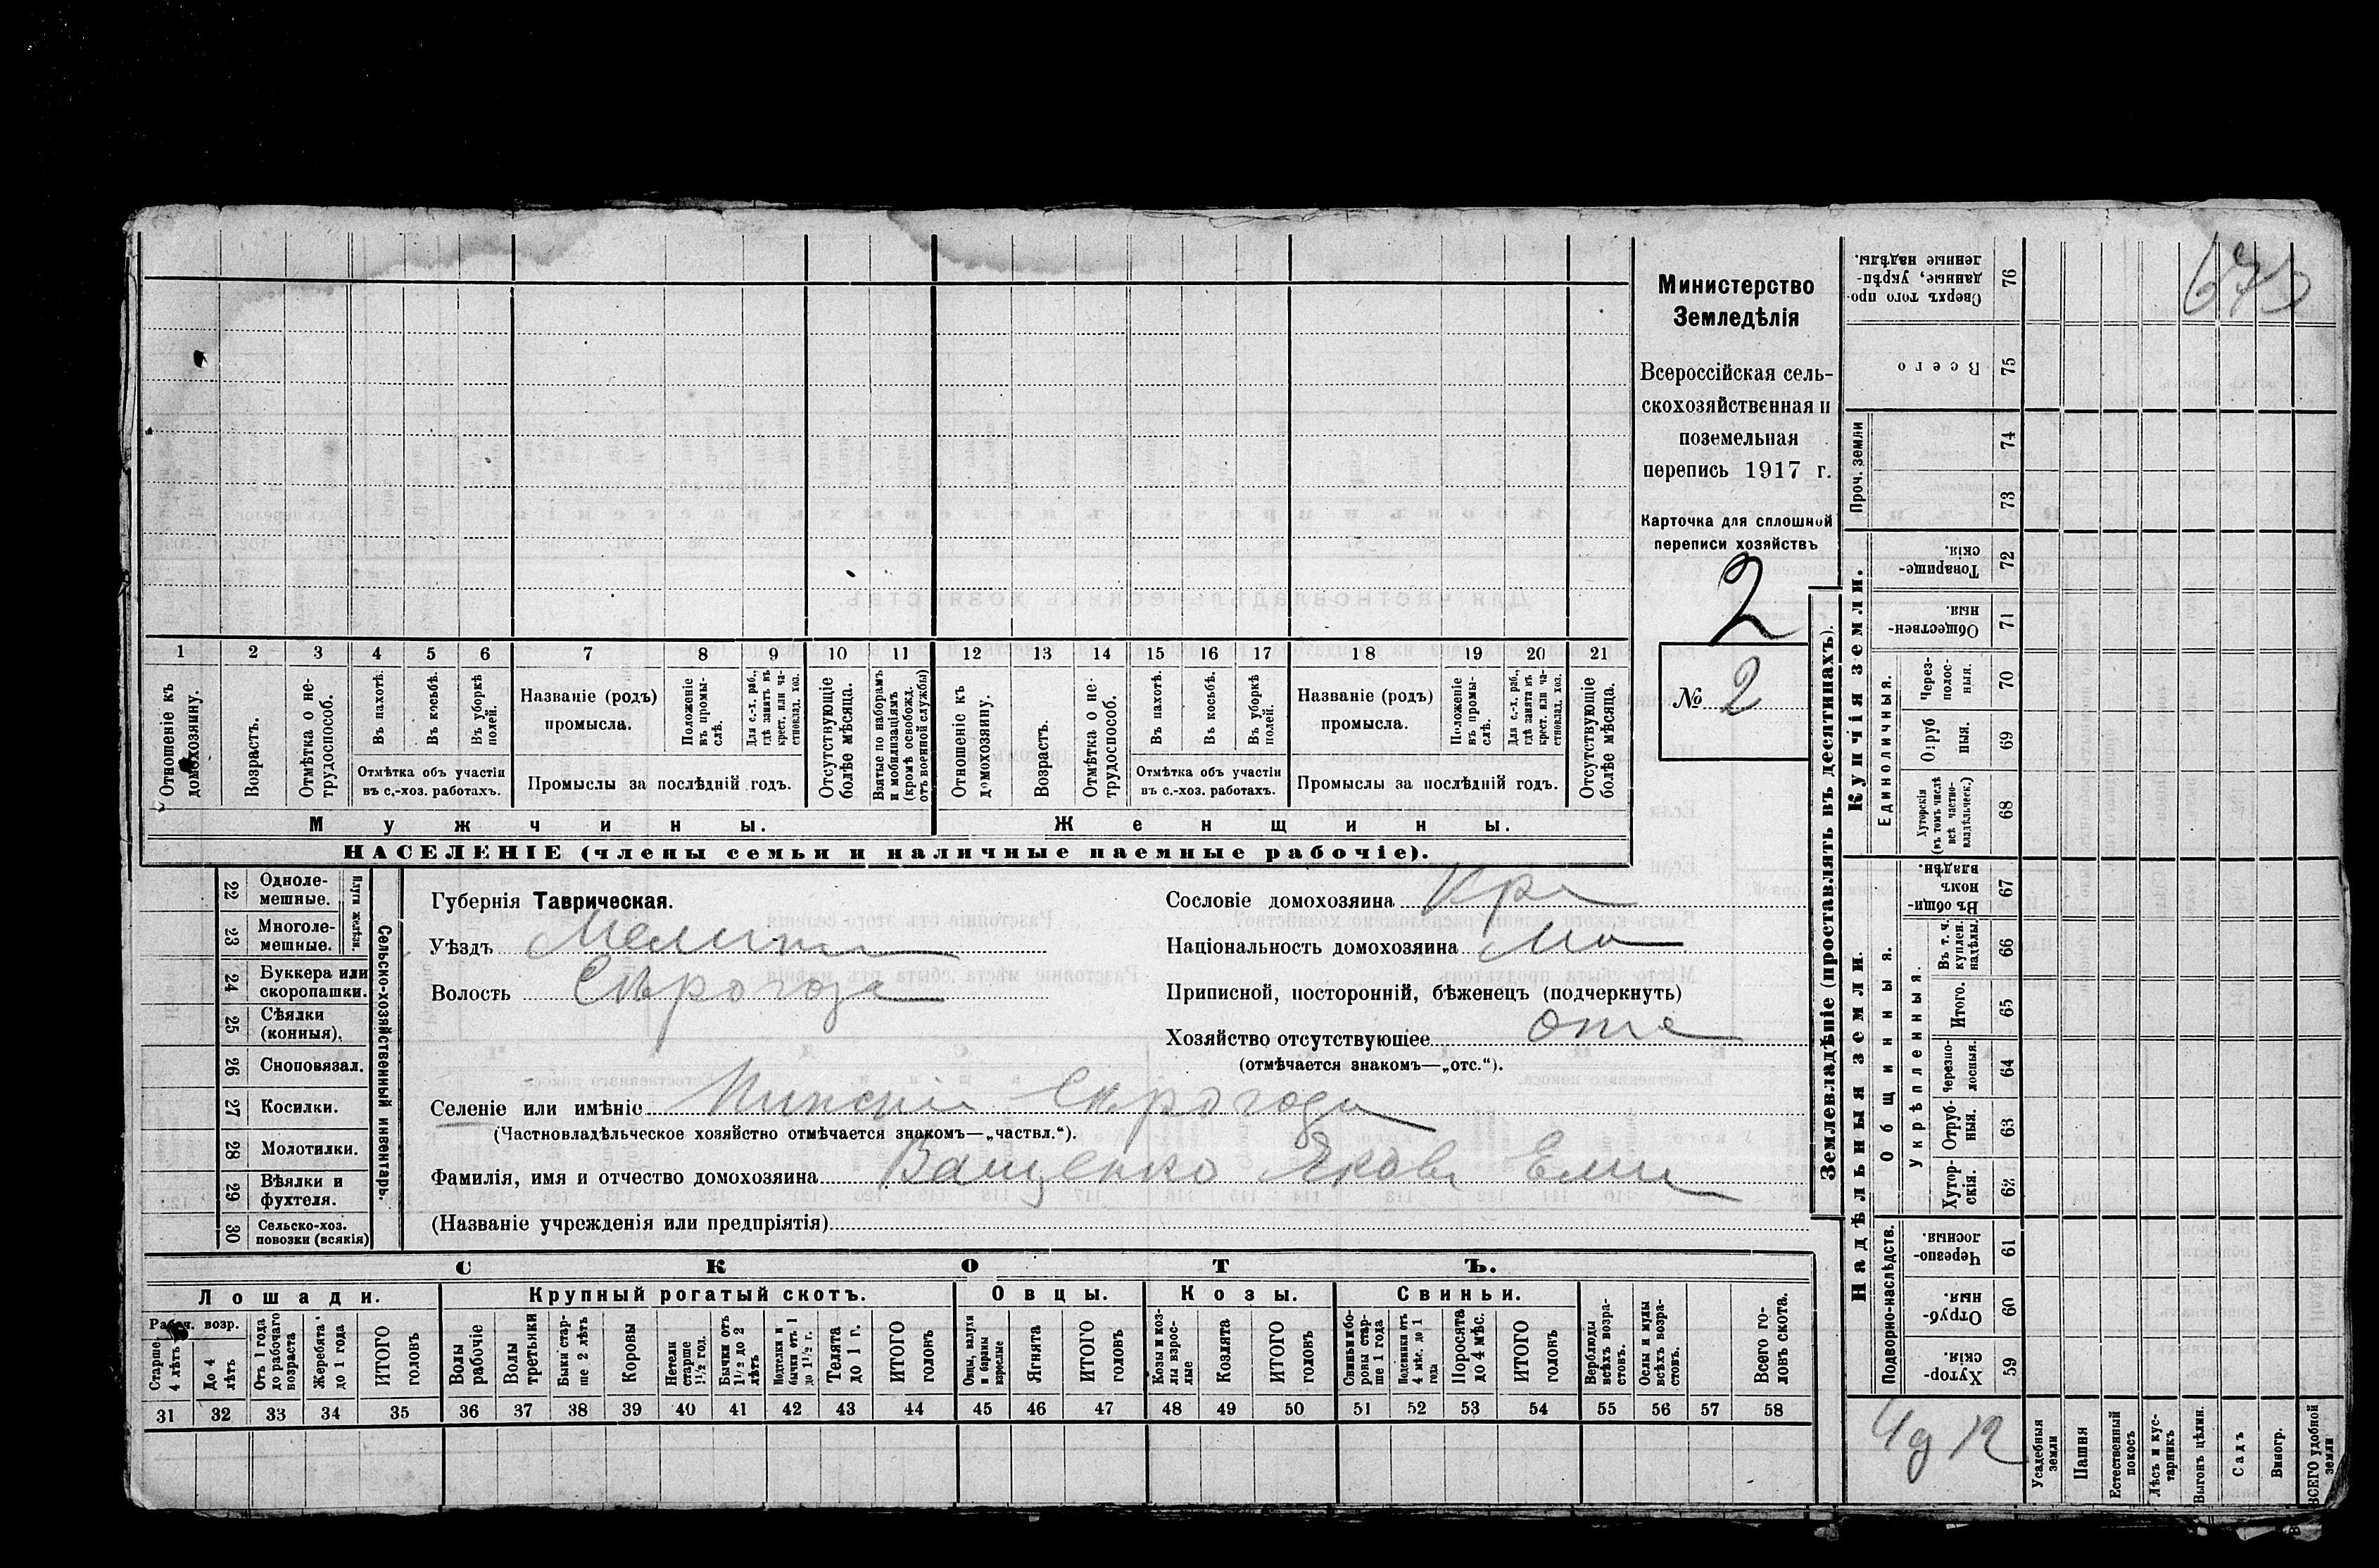 675
Министерство
Земледѣлія
Всероссійская сель-
скохозяйственная и
поземельная
перепись 1917 г.
Карточка для сплошной
переписи хозяйствъ
2
№ 2
1 2 3 4 5 6 7 8 9 10 11 12 13 14 15 16 17 18 19 20 21
Отношеніе къ домохозяину.
Возрастъ.
Отмѣтка о не-трудоспособ.
Въ пахотѣ.
Въ косьбѣ.
Въ уборкѣ полей.
Отмѣтка объ участіи
въ с.-хоз. работахъ.
Названіе (родъ)
промысла.
Положеніе въ промы-слѣ.
Для с.-х. раб., гдѣ занятъ въ крест. или ча-стновлад. хоз.
Промыслы за послѣдній годъ.
Отсутствующіе болѣе мѣсяца.
Взятые по наборамъ и мобилизаціямъ (кромѣ освобожд. отъ военной службы)
Отношеніе къ домохозяину.
Возрастъ.
Отмѣтка о не-трудоспособ.
Въ пахотѣ.
Въ косьбѣ.
Въ уборкѣ полей.
Отмѣтка объ участіи
въ с.-хоз. работахъ.
Названіе (родъ)
промысла.
Положеніе въ промы-слѣ.
Для с.-х. раб., гдѣ занята въ крест. или ча-стновлад. хоз.
Промыслы за послѣдній годъ.
Отсутствующіе болѣе мѣсяца.
Мужчины. Женщины.
НАСЕЛЕНІЕ (члены семьи и наличные наемные рабочіе).
Сельско-хозяйственный инвентарь.
Плуги желѣзн.
22 Одноле-мешные.
23 Многоле-мешные.
24 Буккера или скоропашки.
25 Сѣялки (конныя).
26 Сноповязал.
27 Косилки.
28 Молотилки.
29 Вѣялки и фухтеля.
30 Сельско-хоз. повозки (всякія)
Губернія Таврическая.
Уѣздъ Мелит
Волость Сѣрогоз
Сословіе домохозяина Кр
Національность домохозяина Мо
Приписной, посторонній, бѣженецъ (подчеркнуть)
Хозяйство отсутствующее отс
(отмѣчается знакомъ—„отс.“).
Селеніе или имѣніе Нижніе Сѣрогозы
(Частновладѣльческое хозяйство отмѣчается знакомъ—„частвл.“).
Фамилія, имя и отчество домохозяина Ващенко Яковъ Емел
(Названіе учрежденія или предпріятія)
СКОТЪ.
Лошади. Крупный рогатый скотъ. Овцы. Козы. Свиньи.
Рабоч. возр.
Старше 4 лѣтъ
До 4 лѣтъ
Отъ 1 года до рабочаго возраста
Жеребята до 1 года
ИТОГО головъ
Волы рабочіе
Волы третьяки
Быки стар-ше 2 лѣтъ
Коровы
Нетели старше 1½ год.
Бычки отъ 1½ до 2 лѣтъ
Подтелки и бычки отъ 1 до 1½ г.
Телята до 1 г.
ИТОГО головъ
Овцы, валухи и бараны взрослые
Ягнята
ИТОГО головъ
Козы и коз-лы взрос-лые
Козлята
ИТОГО головъ
Свиньи и бо-ровы стар-ше 1 года
Подсвинки отъ 4 мѣс. до 1 года
Поросята до 4 мѣс.
ИТОГО головъ
Верблюды всѣхъ возра-стовъ.
Ослы и мулы всѣхъ возра-стовъ.
Всего го-ловъ скота.
31 32 33 34 35 36 37 38 39 40 41 42 43 44 45 46 47 48 49 50 51 52 53 54 55 56 57 58
Землевладѣніе (проставлять въ десятинахъ).
Купчія земли.
Надѣльныя земли.
Сверхъ того про-данные, укрѣп-ленные надѣлы. 76
Всего 75
Проч. земли
74
73
Товарище-скія. 72
Обществен-ныя. 71
Единоличныя.
Через-полос-ныя. 70
Отруб ныя. 69
Хуторскія (въ томъ числѣ всѣ частно-владѣльческ.) 68
Общинныя.
Въ общин-номъ владѣн. 67
Укрѣпленныя.
Въ т. ч. куплен. надѣлы 66
Итого. 65
Черезпо-лосныя. 64
Отруб-ныя. 63
Хутор-скія. 62
Подворно-наслѣдств.
Черезпо-лосныя. 61
Отруб-ныя. 60
Хутор-скія. 59
Усадебныя земли
Пашня
Естественный покосъ
Лѣсъ и кус-тарникъ
Выгонъ цѣлин.
Садъ
Виногр.
ВСЕГО удобной земли